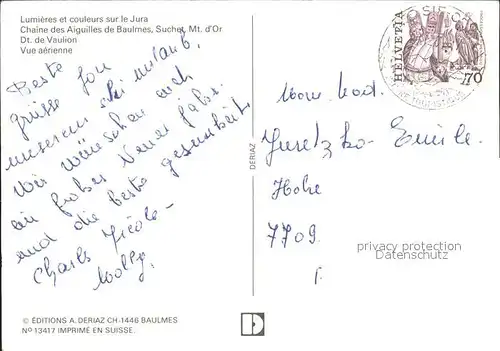 Lumières et couleurs sur le Jura
Chaine des Aiguilles de Baulmes, Suchet, Mt. d'Or
Dt. de Vaulion
Vue aérienne
Beste
grüsse fon
unserem Ski urlaub.
Wir wünschen euch
ein frohes Neues Jahr.
und die beste gesundheit
Charls
Wolly.
HELVETIA
70
DERIAZ
Emile.
Hohe
7709.
privacy protection
watermark
© ÉDITIONS A. DERIAZ CH-1446 BAULMES
Nº 13417 IMPRIMÉ EN SUISSE.